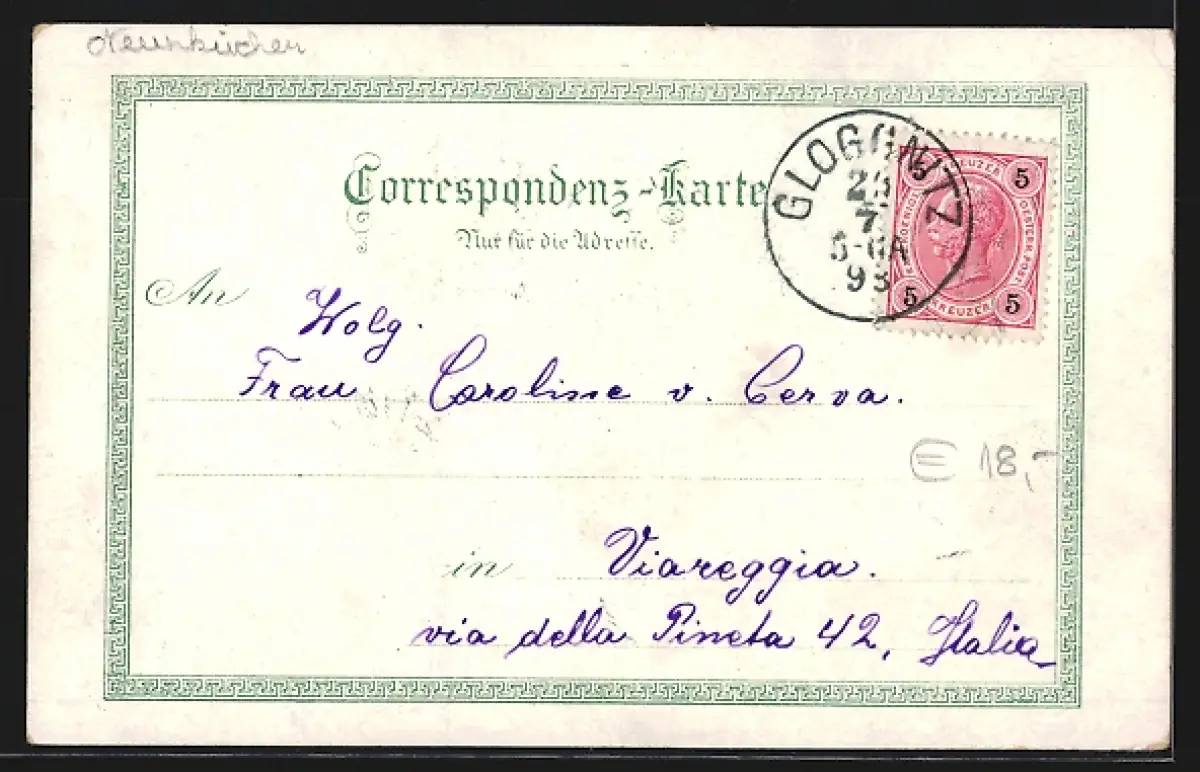 Neunkirchen
Correspondenz-Karte
Nur für die Adresse.
GLOGGNITZ
7
5-6A
5 KREUZER 5
5 KREUZER 5
An Wolg.
Frau Caroline v. Cerva.
€ 18,-
in Viareggia.
via della Pineta 42, Italia